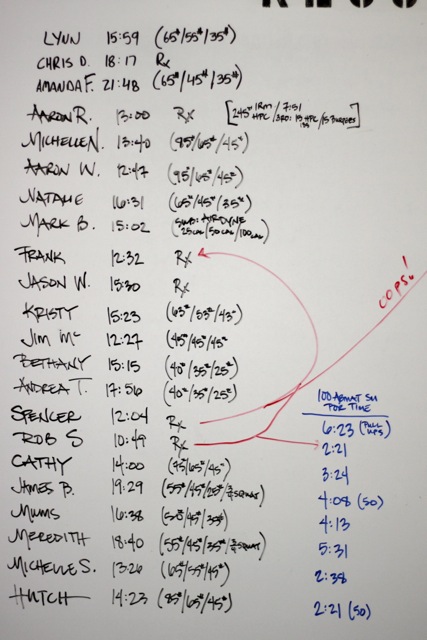 LYNN 15:59 (65#/55#/35#)
CHRIS D. 18:17 Rx
AMANDA F. 21:48 (65#/45#/35#)
AARON R. 13:00 Rx [245# 1RM / 7:51
HPC / 3RD: 15 HPC /15 BURPEES]
MICHELLE N. 13:40 (95#/65#/45#)
AARON W. 12:47 (95#/65#/45#)
NATALIE 16:31 (65#/45#/35#)
MARK B. 15:02 (SUB: AIRDYNE
25 CAL/50 CAL/100 CAL)
FRANK 12:32 Rx
JASON W. 15:30 Rx
KRISTY 15:23 (65#/55#/45#)
JIM MC 12:27 (45#/45#/45#
BETHANY 15:15 (40#/35#/25#)
ANDREA T. 17:56 (40#/35#/25#)
SPENCER 12:04 Rx
ROB S 10:49 Rx
CATHY 14:00 (95#/65#/45#)
JAMES B. 19:29 (55#/45#/25#/¾ SQUAT)
MUMS 16:38 (50#/45#/35#)
MEREDITH 18:40 (55#/45#/35#/¾ SQUAT)
MICHELLE S. 13:26 (65#/55#/45#)
HUTCH 14:23 (85#/65#/45#)
OOPS!
100 ABMAT SU
FOR TIME
6:23 (PULL
UPS)
2:21
3:24
4:08 (SO)
4:13
5:31
2:38
2:21 (SO)